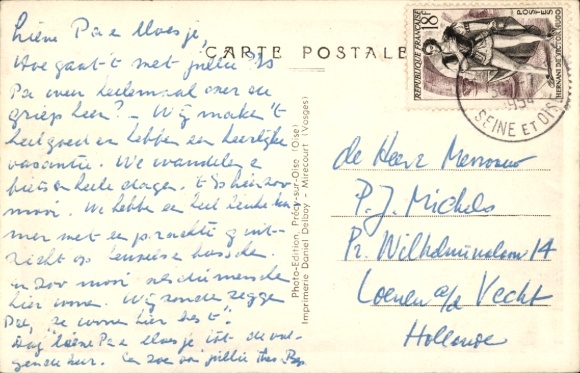 Lieve Pa e Moesje,
Hoe gaat 't met jullie? Is
Pa weer helemaal over de
griep heen? – Wij maken 't
heel goed en hebben een heerlijke
vacantie. We wandelen e
fietsen hele dagen. 't Is hier zo
mooi. We hebbe een heel leuke ka
mer met een prachtig uit-
zicht op bossche.
zo mooi
hier wone. Wij zoude zegge
Pa, "ze wone hier best".
Dag lieve Pa e Moesje tot de vol-
gende keer. Een zoen van jullie
CARTE POSTALE
REPUBLIQUE FRANÇAISE
18F
POSTES
HERNANI DE VICTOR HUGO
SEINE ET OISE
Photo-Edition, Précy-sur-Oise (Oise)
Imprimerie Daniel Delboy - Mirecourt (Vosges)
de Heer e Mevrouw
P. J. Michels
Pr. Wilhelminalaan 14
Loenen a/d Vecht
Hollande